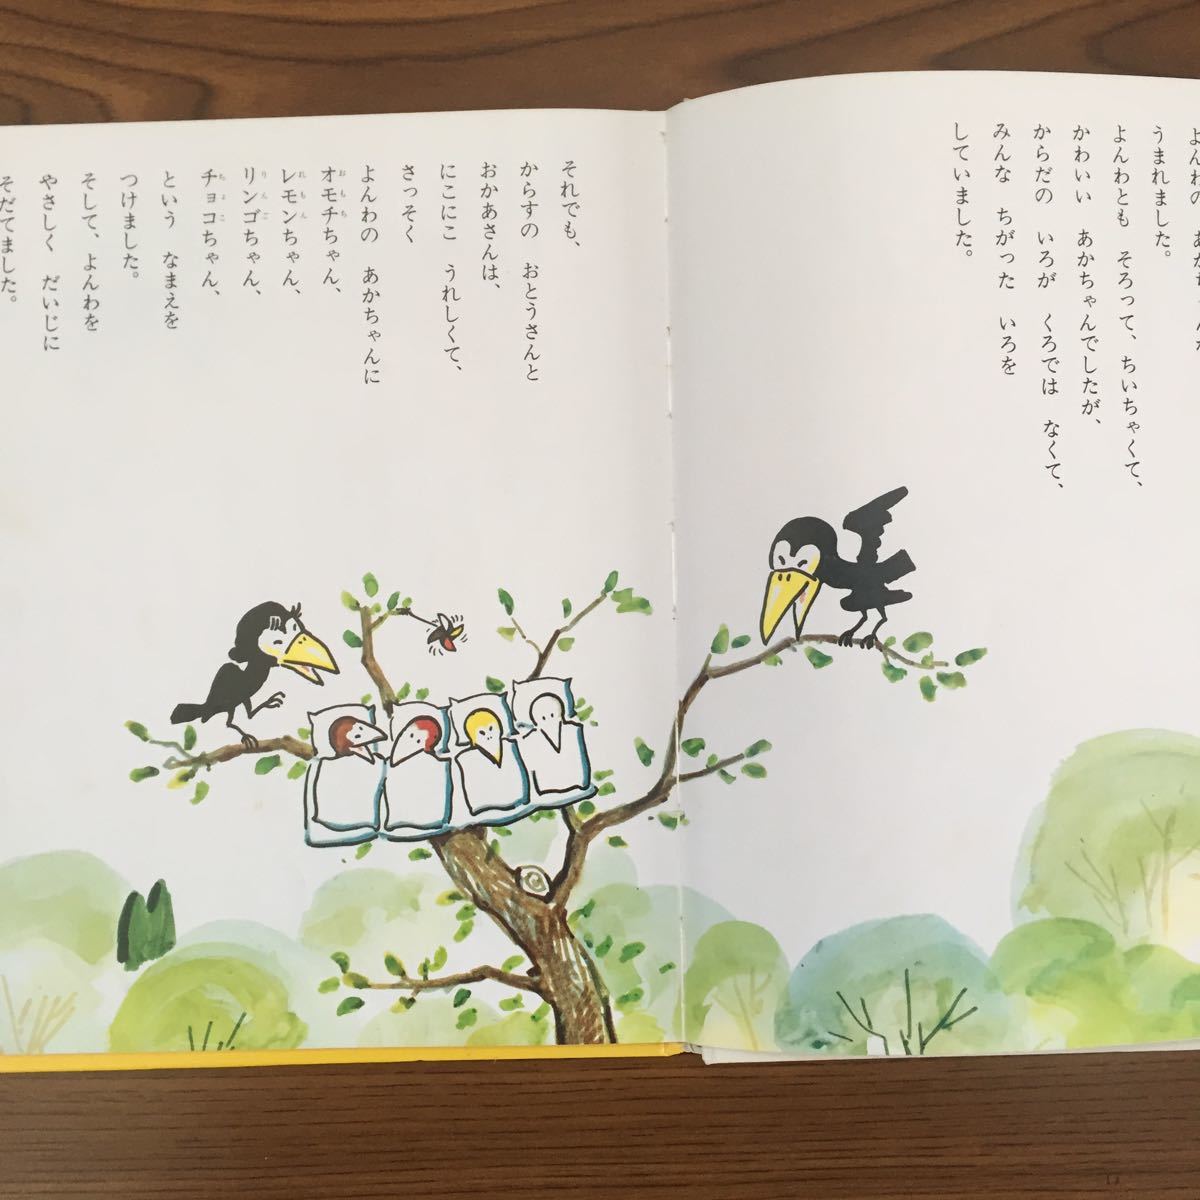 よんわの あかちゃんが
うまれました。
よんわとも そろって、ちいちゃくて、
かわいい あかちゃんでしたが、
からだの いろが くろでは なくて、
みんな ちがった いろを
していました。
それでも、
からすの おとうさんと
おかあさんは、
にこにこ うれしくて、
さっそく
よんわの あかちゃんに
オモチちゃん、
レモンちゃん、
リンゴちゃん、
チョコちゃん、
という なまえを
つけました。
そして、よんわを
やさしく だいじに
そだてました。